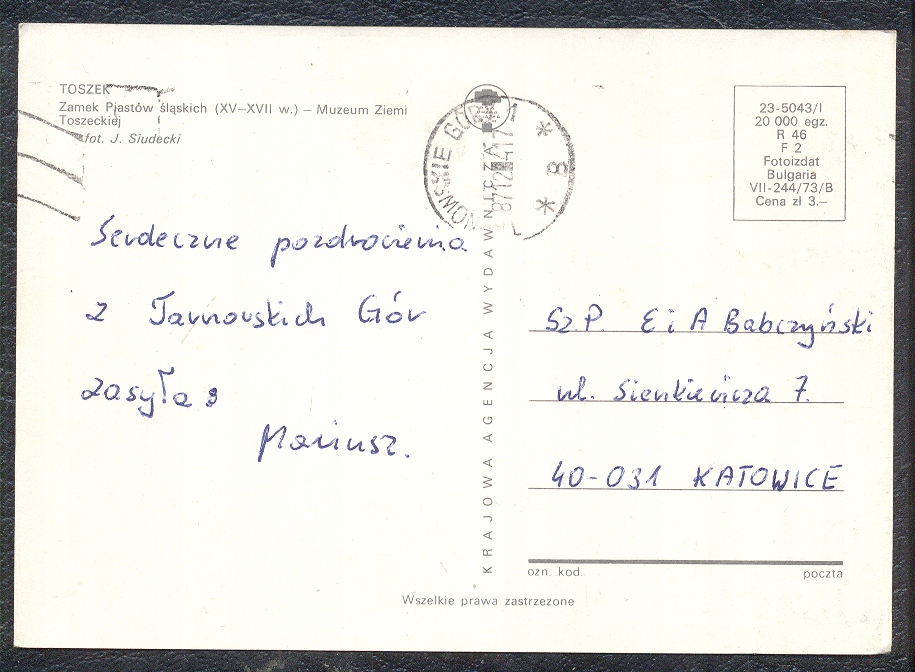 TOSZEK
Zamek Piastów śląskich (XV–XVII w.) – Muzeum Ziemi
Toszeckiej
fot. J. Siudecki
Serdeczne pozdrowienia
z Tarnowskich Gór
zasyła:
Mariusz.
KRAJOWA AGENCJA WYDAWNICZA
8
23-5043/I
20 000 egz.
R 46
F 2
Fotoizdat
Bulgaria
VII-244/73/B
Cena zł 3.–
Sz.P. E i A Babczyński
ul. Sienkiewicza 7.
40-031 KATOWICE
ozn. kod. poczta
Wszelkie prawa zastrzeżone